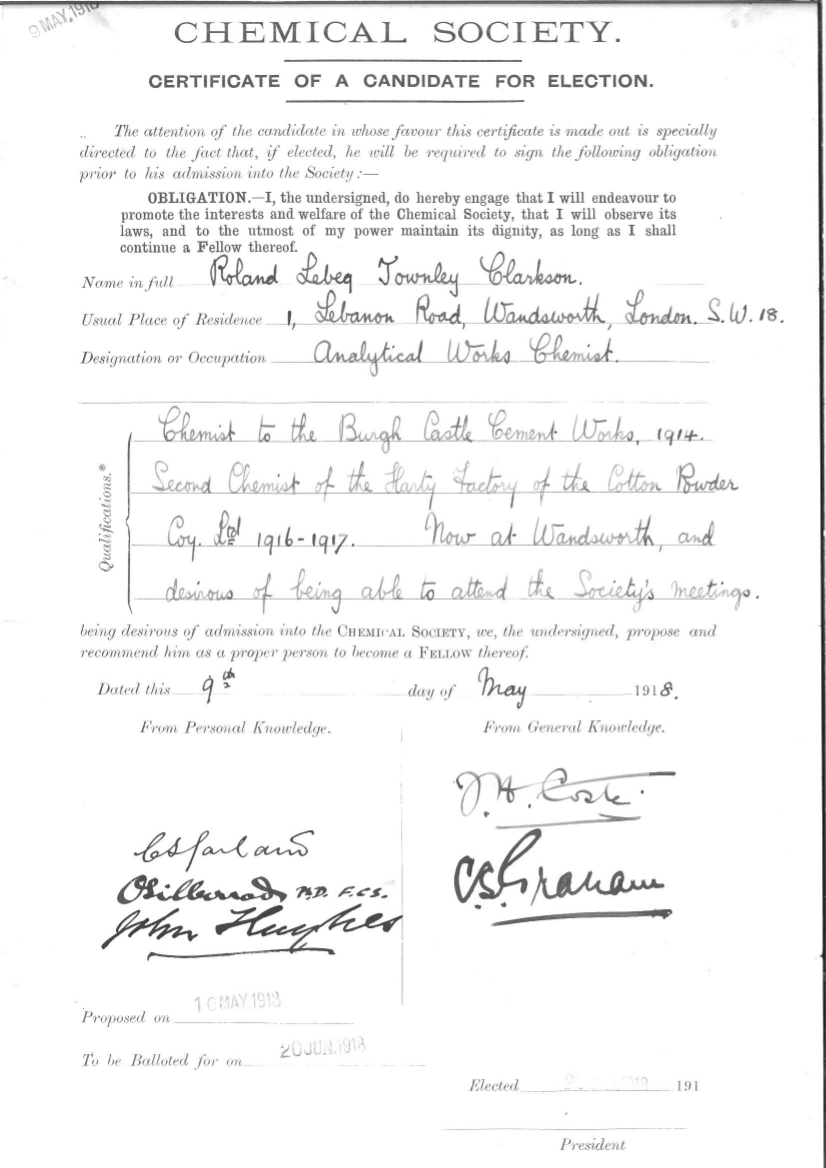 9 MAY.1918
CHEMICAL SOCIETY.
CERTIFICATE OF A CANDIDATE FOR ELECTION.
The attention of the candidate in whose favour this certificate is made out is specially
directed to the fact that, if elected, he will be required to sign the following obligation
prior to his admission into the Society:—
OBLIGATION.—I, the undersigned, do hereby engage that I will endeavour to
promote the interests and welfare of the Chemical Society, that I will observe its
laws, and to the utmost of my power maintain its dignity, as long as I shall
continue a Fellow thereof.
Name in full Roland Lebeq Townley Clarkson.
Usual Place of Residence 1, Lebanon Road, Wandsworth, London. S.W. 18.
Designation or Occupation Analytical Works Chemist.
Qualifications.*
Chemist to the Burgh Castle Cement Works, 1914.
Second Chemist of the Harty Factory of the Cotton Powder
Coy. Ltd 1916-1917. Now at Wandsworth, and
desirous of being able to attend the Society's meetings.
being desirous of admission into the CHEMICAL SOCIETY, we, the undersigned, propose and
recommend him as a proper person to become a FELLOW thereof.
Dated this 9th day of May 1918.
From Personal Knowledge. From General Knowledge.
J. H. Coste.
C.S. Graham
O Silberrad PH.D. F.C.S.
John Hughes
Proposed on 16 MAY 1918
To be Balloted for on 20 JUN. 1918
Elected 191
President